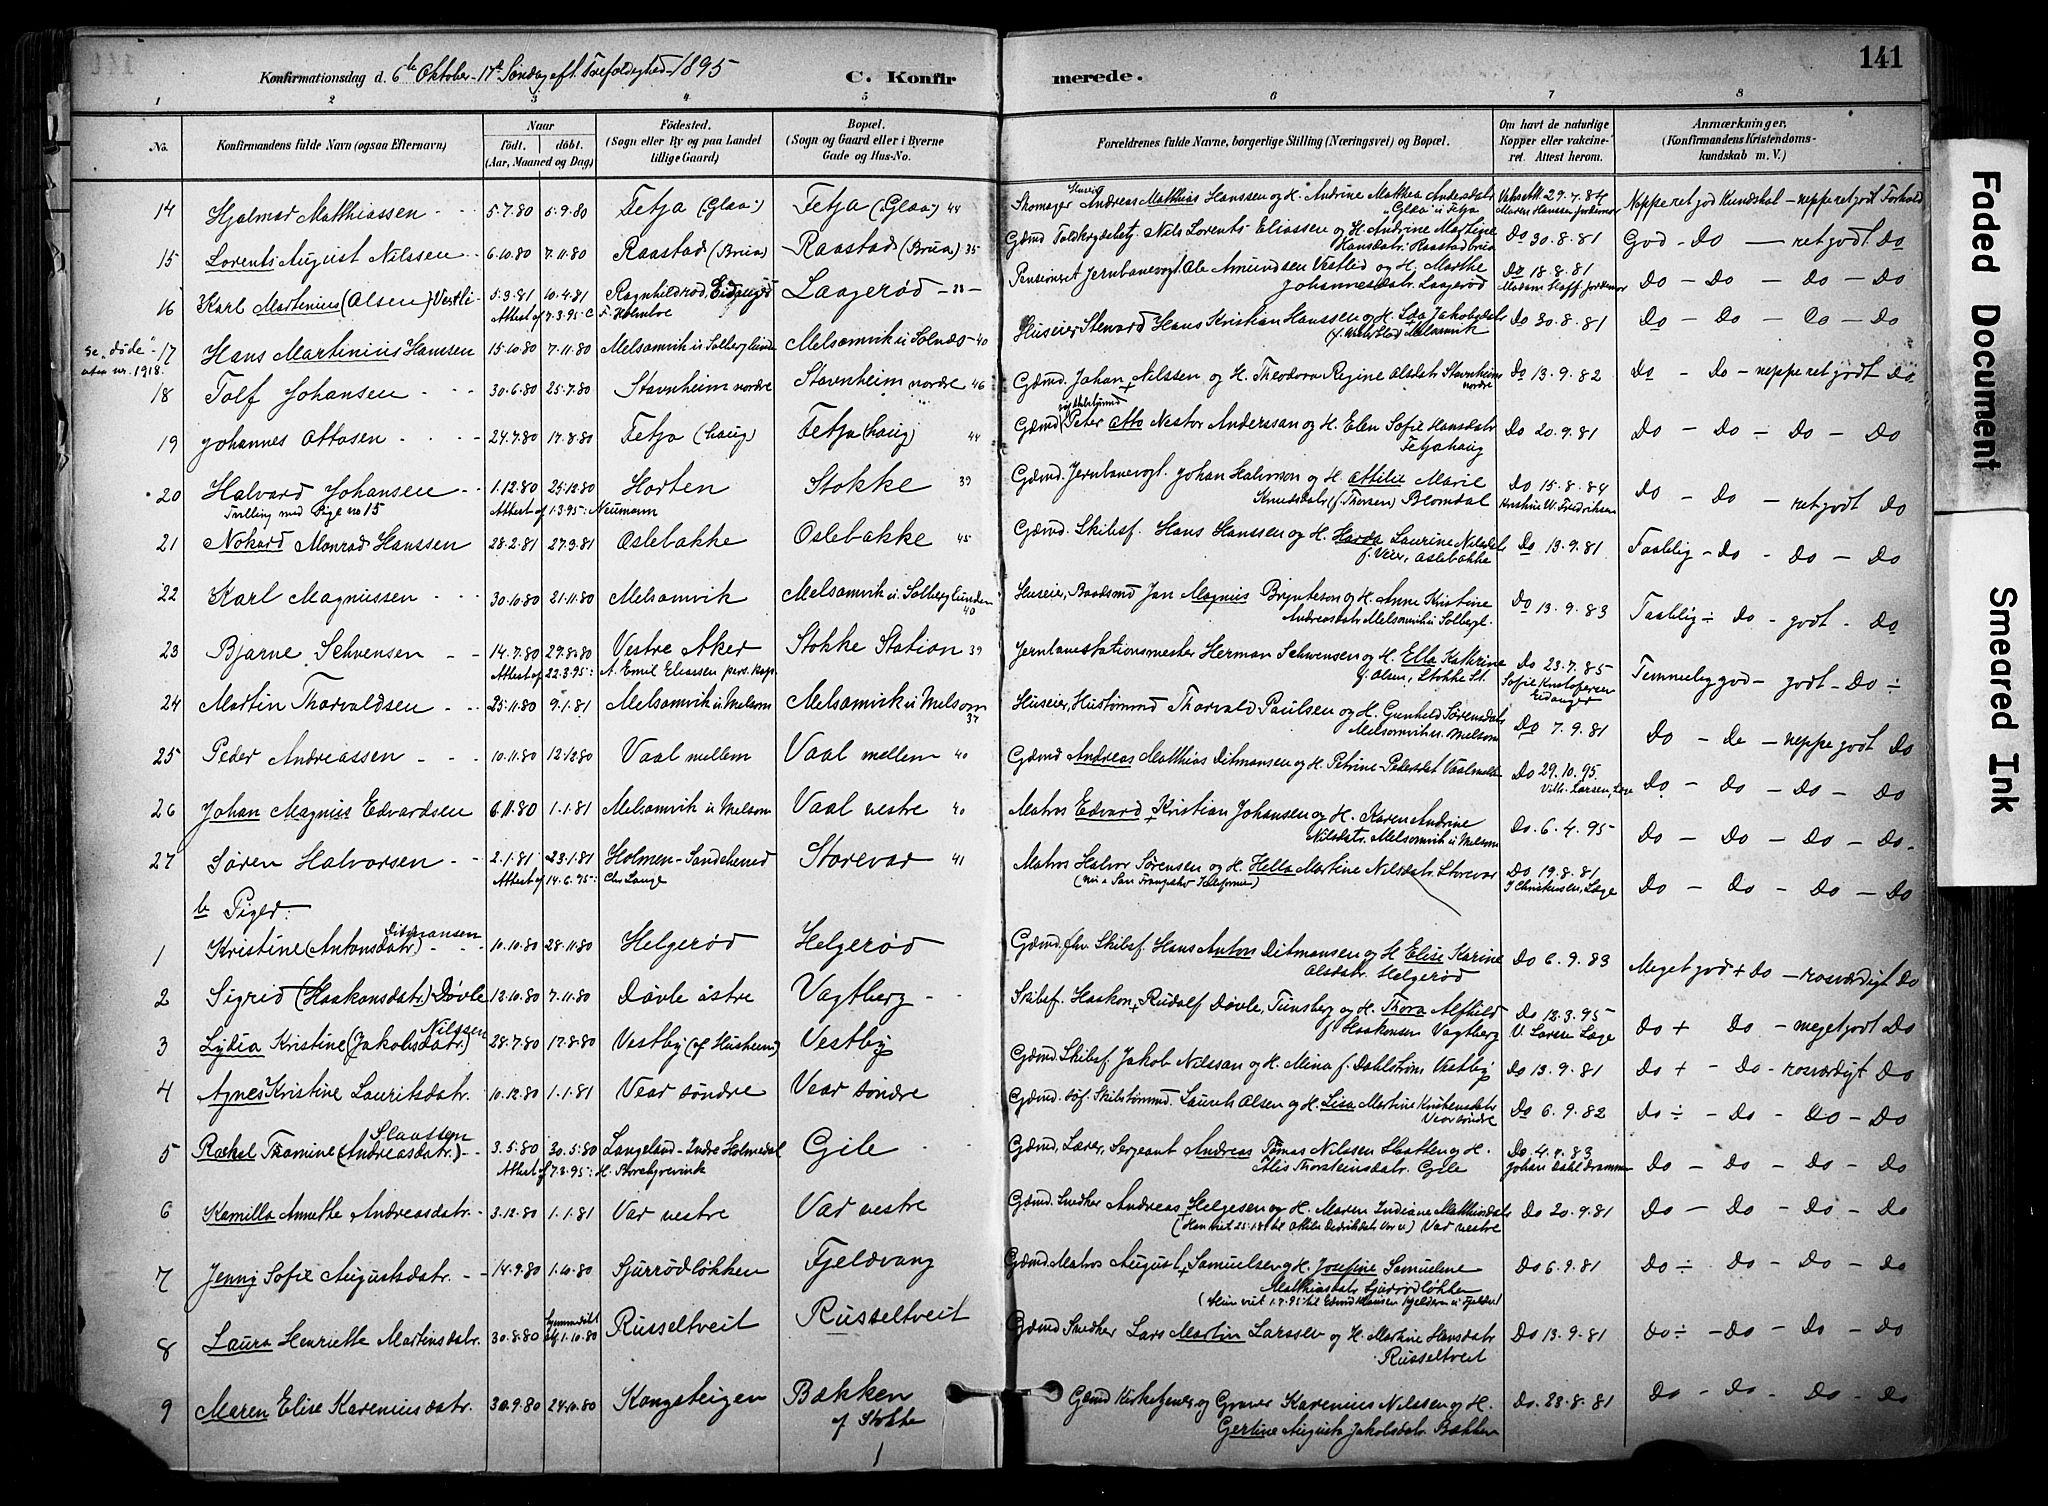 141
Konfirmationsdag d. 6te Oktober - 17de Søndag eft. Trefoldighed - 1895 C. Konfirmerede.
1 2 3 4 5 6 7 8
No. Konfirmandens fulde Navn (ogsaa Efternavn) Naar født. døbt. (Aar, Maaned og Dag) Fødested. (Sogn eller By og paa Landet tillige Gaard) Bopæl. (Sogn og Gaard eller i Byerne Gade og Hus-No. Forældrenes fulde Navne, borgerlige Stilling (Næringsvei) og Bopæl. Om havt de naturlige Kopper eller vakcineret. Attest herom. Anmærkninger, (Konfirmandens Kristendomskundskab m. V.)
14 Hjalmar Matthiassen 5.7.80 5.9.80 Fetja (Glaa) Fetja (Glaa) 44 Skomager Andreas Matthias Hanssen og H. Andrine Mathea Andersdatr "Glaa" u Fetja 29.7.84 Maren Hansen Jordemor Neppe ret god Kundskab - neppe ret godt Forhold
15 Lorents August Nilssen 6.10.80 7.11.80 Raastad (Brua) Raastad (Brua) 35 Gæmd Nils Lorents Eliassen og H. Andrine Martine Hansdatr. Raastadbrua Do 30.8.81 God - Do - ret godt Do
16 Karl Martinius (Olsen) Vestli 5.3.81 10.4.81 Ragnhildrød Eidanger Laagerød - Pensioneret Jernbanevogt Ole Amundsen Vestlid og H. Marthe Johannesdatr. Laagerød Do 18.8.81 Madam Jordemor Do - Do - Do - Do
Attest af 7.3.95 C F. Holmboe
se "døde" uten nr. 1918.
17 Hans Martinius Hansen 15.10.80 7.11.80 Melsomvik u Solberglunden Melsomvik u Solnæs 40 Huseier Steward Hans Kristian Hanssen og H. Lova Jakobsdatr Melsomvik Do 30.8.81 Do - Do - Do - Do
18 Tolf Johansen 30.6.80 25.7.80 Stavnheim nordre Stavnheim nordre 46 Gæmd. Johan Nilssen og H. Theodora Regine Olsdatr Stavnheim nordre Do 13.9.82 Do - Do - neppe ret godt Do
19 Johannes Ottosen 24.7.80 17.8.80 Fetja (haug) Fetja (haug) 44 Gæmd Peter Otto Nestor Anderssan og H. Elen Sofie Hansdatr Fetjahaug Do 20.9.81 Do - Do - Do - Do
20 Halvard Johansen 1.12.80 25.12.80 Horten Stokke 39 Gæmd. Jernbanevogt. Johan Halvorson og H. Attilie Marie Knudsdatr (f Thorsen) Blomdal Do 15.8.84 Fredriksen Do - Do - ret godt Do
Tvilling med Pige no 15 Attest af 1.3.95: Neumann
21 Nokard Monrad Hanssen 28.2.81 27.3.81 Oslebakke Oslebakke 45 Gæmd. Skibsf. Hans Hanssen og H. Harda Laurine Nilsdatr f. Veier, Oslebakke Do 13.9.81 Taalelig - Do - Do - Do
22 Karl Magnussen 30.10.80 21.11.80 Melsomvik Melsomvik u Solberglunden 40 Huseier, Baadsmd Jan Magnus Brynteson og H. Anne Kristine Andreasdatr Melsomvik u Solbergl. Do 13.9.83 Taalelig - Do - godt - Do
23 Bjarne Schvensen 14.7.80 29.8.80 Vestre Aker Stokke Station 39 Jernbanestationsmester Herman Schwensen og H. Ella Kathrine f. Olsen, Stokke St. Do 23.7.85 Sofie Kristofersen Eidanger Temmelig god - godt - Do
Attest af 22.3.95: A. Emil Eliassen pers. kap.
24 Martin Thorvaldsen 25.11.80 9.1.81 Melsomvik u Melsom Melsomvik u Melsom 37 Huseier, Hustømmd Thorvald Paulsen og H. Gunhild Sørensdatr Melsomvik u Melsom Do 7.9.81 Do - Do - neppe godt Do
25 Peder Andreassen 10.11.80 12.12.80 Vaal mellem Vaal mellem 40 Gæmd Andreas Matthias Ditmansen og H. Petrine Pedersdat Vaal mell. Do 29.10.95. Vilh. Larsen, Læge Do - Do - Do - Do
26 Johan Magnus Edvardsen 6.11.80 1.1.81 Melsomvik u Melsom Vaal vestre 40 Matros Edvard Kristian Johansen og H. Karen Andrine Nilsdatr. Melsomvik u Melsom Do. 6.4.95 Do - Do - Do - Do.
27 Søren Halvorsen 2.1.81 23.1.81 Holmen - Sandeherred Storevar 41 Matros Halvor Sørensen og H. Hella Martine Nilsdatr. Storevar Do 19.8.81 J Christensen, Læge Do - Do - Do - Do
Attest af 14.6.95: Chr Lange (nu i San Fransisko Kalifornien)
b Piger:
1 Kristine (Antonsdatr) Ditmansen 10.10.80 28.11.80 Helgerød Helgerød Gæmd. fhv Skibsf. Hans Anton Ditmansen og H Elise Karine Olsdatr. Helgerød Do 6.9.83 Meget god + Do - rosværdigt Do
2 Sigrid (Haakonsdatr.) Døvle 12.10.80 7.11.80 Døvle østre Vagtberg Skibsf. Haakon Rudolf Døvle, Tunsberg og H. Thora Alfhild f Haakonsen Vagtberg Do 12.3.95 V. Larsen Læge Do + Do - meget godt Do
3 Lydia Kristine (Jakobsdatr.) Nilssen 28.7.80 17.8.80 Vestby Vestby Gæmd. Skibsf. Jakob Nilssan og H. Mina f. Dahlstrøm Vestby Do 13.9.81 Do + - Do - rosværdigt Do
4 Agnes Kristine Lauritsdatr. 10.12.80 1.1.81 Vear søndre Vear søndre Gæmd. Skibstømmd. Laurits Olsen og H. Lisa Martine Kristensdatr Vear søndre Do 6.9.82 Do ÷ - Do - Do - Do
5 Rakel Thomine (Andreasdatr.) Slaatten 3.5.80 30.5.80 Langeland - Indre Holmedal Gile Gæmd, Lærer, Sergeant Andreas Tomas Nilssen Slaatten og H. Thorsteinsdatr. Gile Do 4.9.83 Johan Dahl Drammen Do - Do - Do - Do
Attest af 7.3.95: H.
6 Kamilla Annette Andreasdatr. 3.12.80 1.1.81 Var vestre Var vestre Gæmd. Snedker Andreas Helgesen og H. Maren Indiane Matthiasdatr Var vestre Do 20.9.81 Do - Do - Do - Do
7 Jenny Sofie Augustsdatr. 14.9.80 1.10.80 Sjurrødløkken Fjeldvang Gæmd Matros August Samuelsen og H. Josefine Samueline Matthiasdatr Sjurrødløkken Do 6.9.81 Do ÷ Do - Do - Do
8 Laura Henriette Martinsdatr. 30.8.80 1.10.80 Russeltveit Russeltveit Gæmd Snedker Lars Martin Larssen og H. Martine Hansdatr Russeltveit Do 13.9.81 Do ÷ - Do - Do - Do
9 Maren Elise Kareniusdatr. 30.9.80 24.10.80 Kongsteigen Bakken af Stokke Gæmd Kirketjener og Graver Karenius Nilssen og H. Gertine Augusta Jakobsdatr. Bakken Do. 28.8.81 Do - Do - Do - Do
Faded Document
Smeared Ink